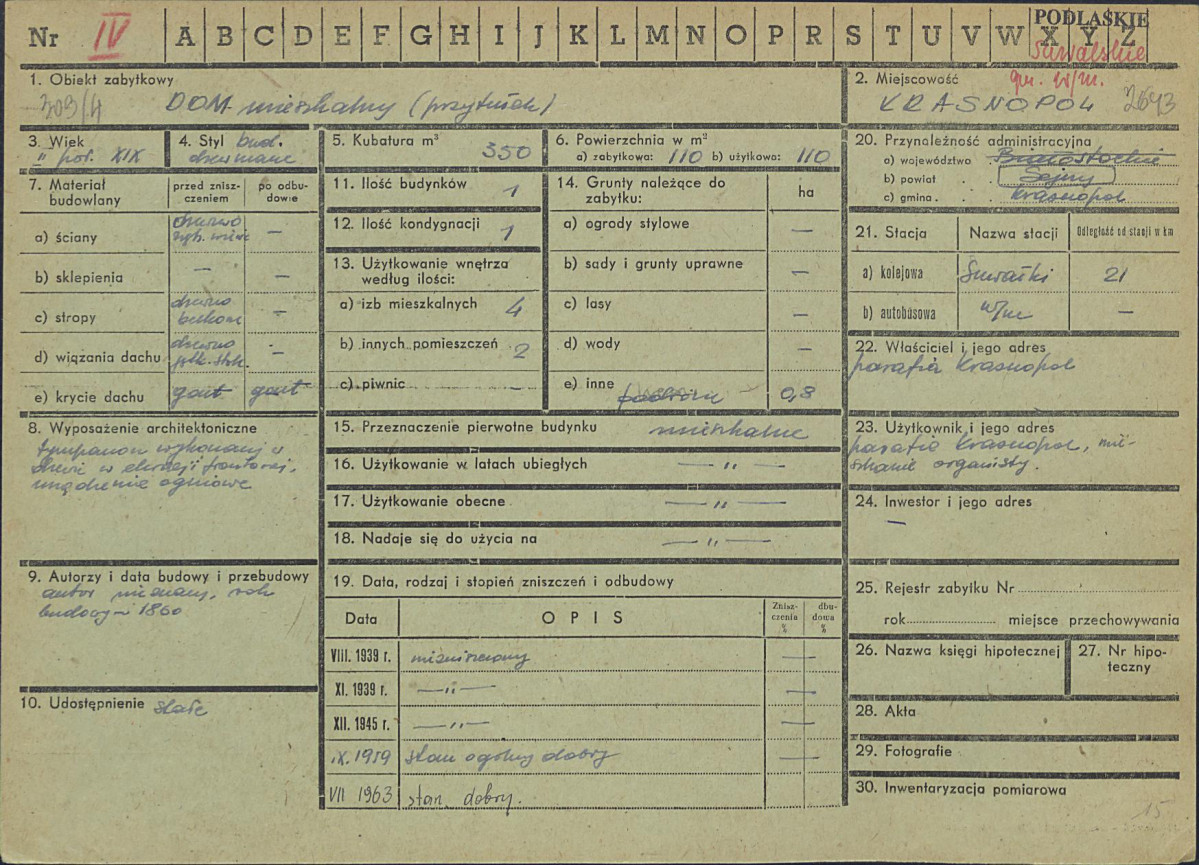 Nr IV A B C D E F G H I J K L M N O P R S T U V W X Y Z
PODLASKIE
Suwalskie
gm. w/m.
1. Obiekt zabytkowy
309/4 DOM mieszkalny (przytułek)
2. Miejscowość
KRASNOPOL
2643
3. Wiek
II poł. XIX
4. Styl bud.
drewniane
5. Kubatura m³ 350
6. Powierzchnia w m²
a) zabytkowa: 110 b) użytkowa: 110
7. Materiał budowlany
przed zniszczeniem
po odbudowie
a) ściany
drewno
—
b) sklepienia — —
c) stropy
drewno
belkowe
—
d) wiązania dachu
drewno
—
e) krycie dachu gont gont
8. Wyposażenie architektoniczne
tympanon wykonany w
urządzenie ogniowe
9. Autorzy i data budowy i przebudowy
autor nieznany, rok
budowy - 1860
10. Udostępnienie stałe
11. Ilość budynków 1
12. Ilość kondygnacji 1
13. Użytkowanie wnętrza
według ilości:
a) izb mieszkalnych 4
b) innych pomieszczeń 2
c) piwnic -
14. Grunty należące do
zabytku:
ha
a) ogrody stylowe —
b) sady i grunty uprawne —
c) lasy —
d) wody —
e) inne
podwórze 0,8
15. Przeznaczenie pierwotne budynku mieszkalne
16. Użytkowanie w latach ubiegłych — " —
17. Użytkowanie obecne — " —
18. Nadaje się do użycia na — " —
19. Data, rodzaj i stopień zniszczeń i odbudowy
Data
OPIS
Zniszczenia %
dbudowa %
VIII. 1939 r. niezniszczony —
XI. 1939 r. — " — —
XII. 1945 r. — " — —
IX. 1959 stan ogólny dobry —
VII 1963 stan dobry.
20. Przynależność administracyjna
a) województwo Białostockie
b) powiat . . Sejny
c) gmina . . Krasnopol
21. Stacja
Nazwa stacji
Odległość od stacji w km
a) kolejowa Suwałki 21
b) autobusowa w/m —
22. Właściciel i jego adres
parafia Krasnopol
23. Użytkownik i jego adres
parafia Krasnopol, mie-
szkanie organisty.
24. Inwestor i jego adres
—
25. Rejestr zabytku Nr
rok miejsce przechowywania
26. Nazwa księgi hipotecznej
27. Nr hipo-
teczny
28. Akta
29. Fotografie
30. Inwentaryzacja pomiarowa
15